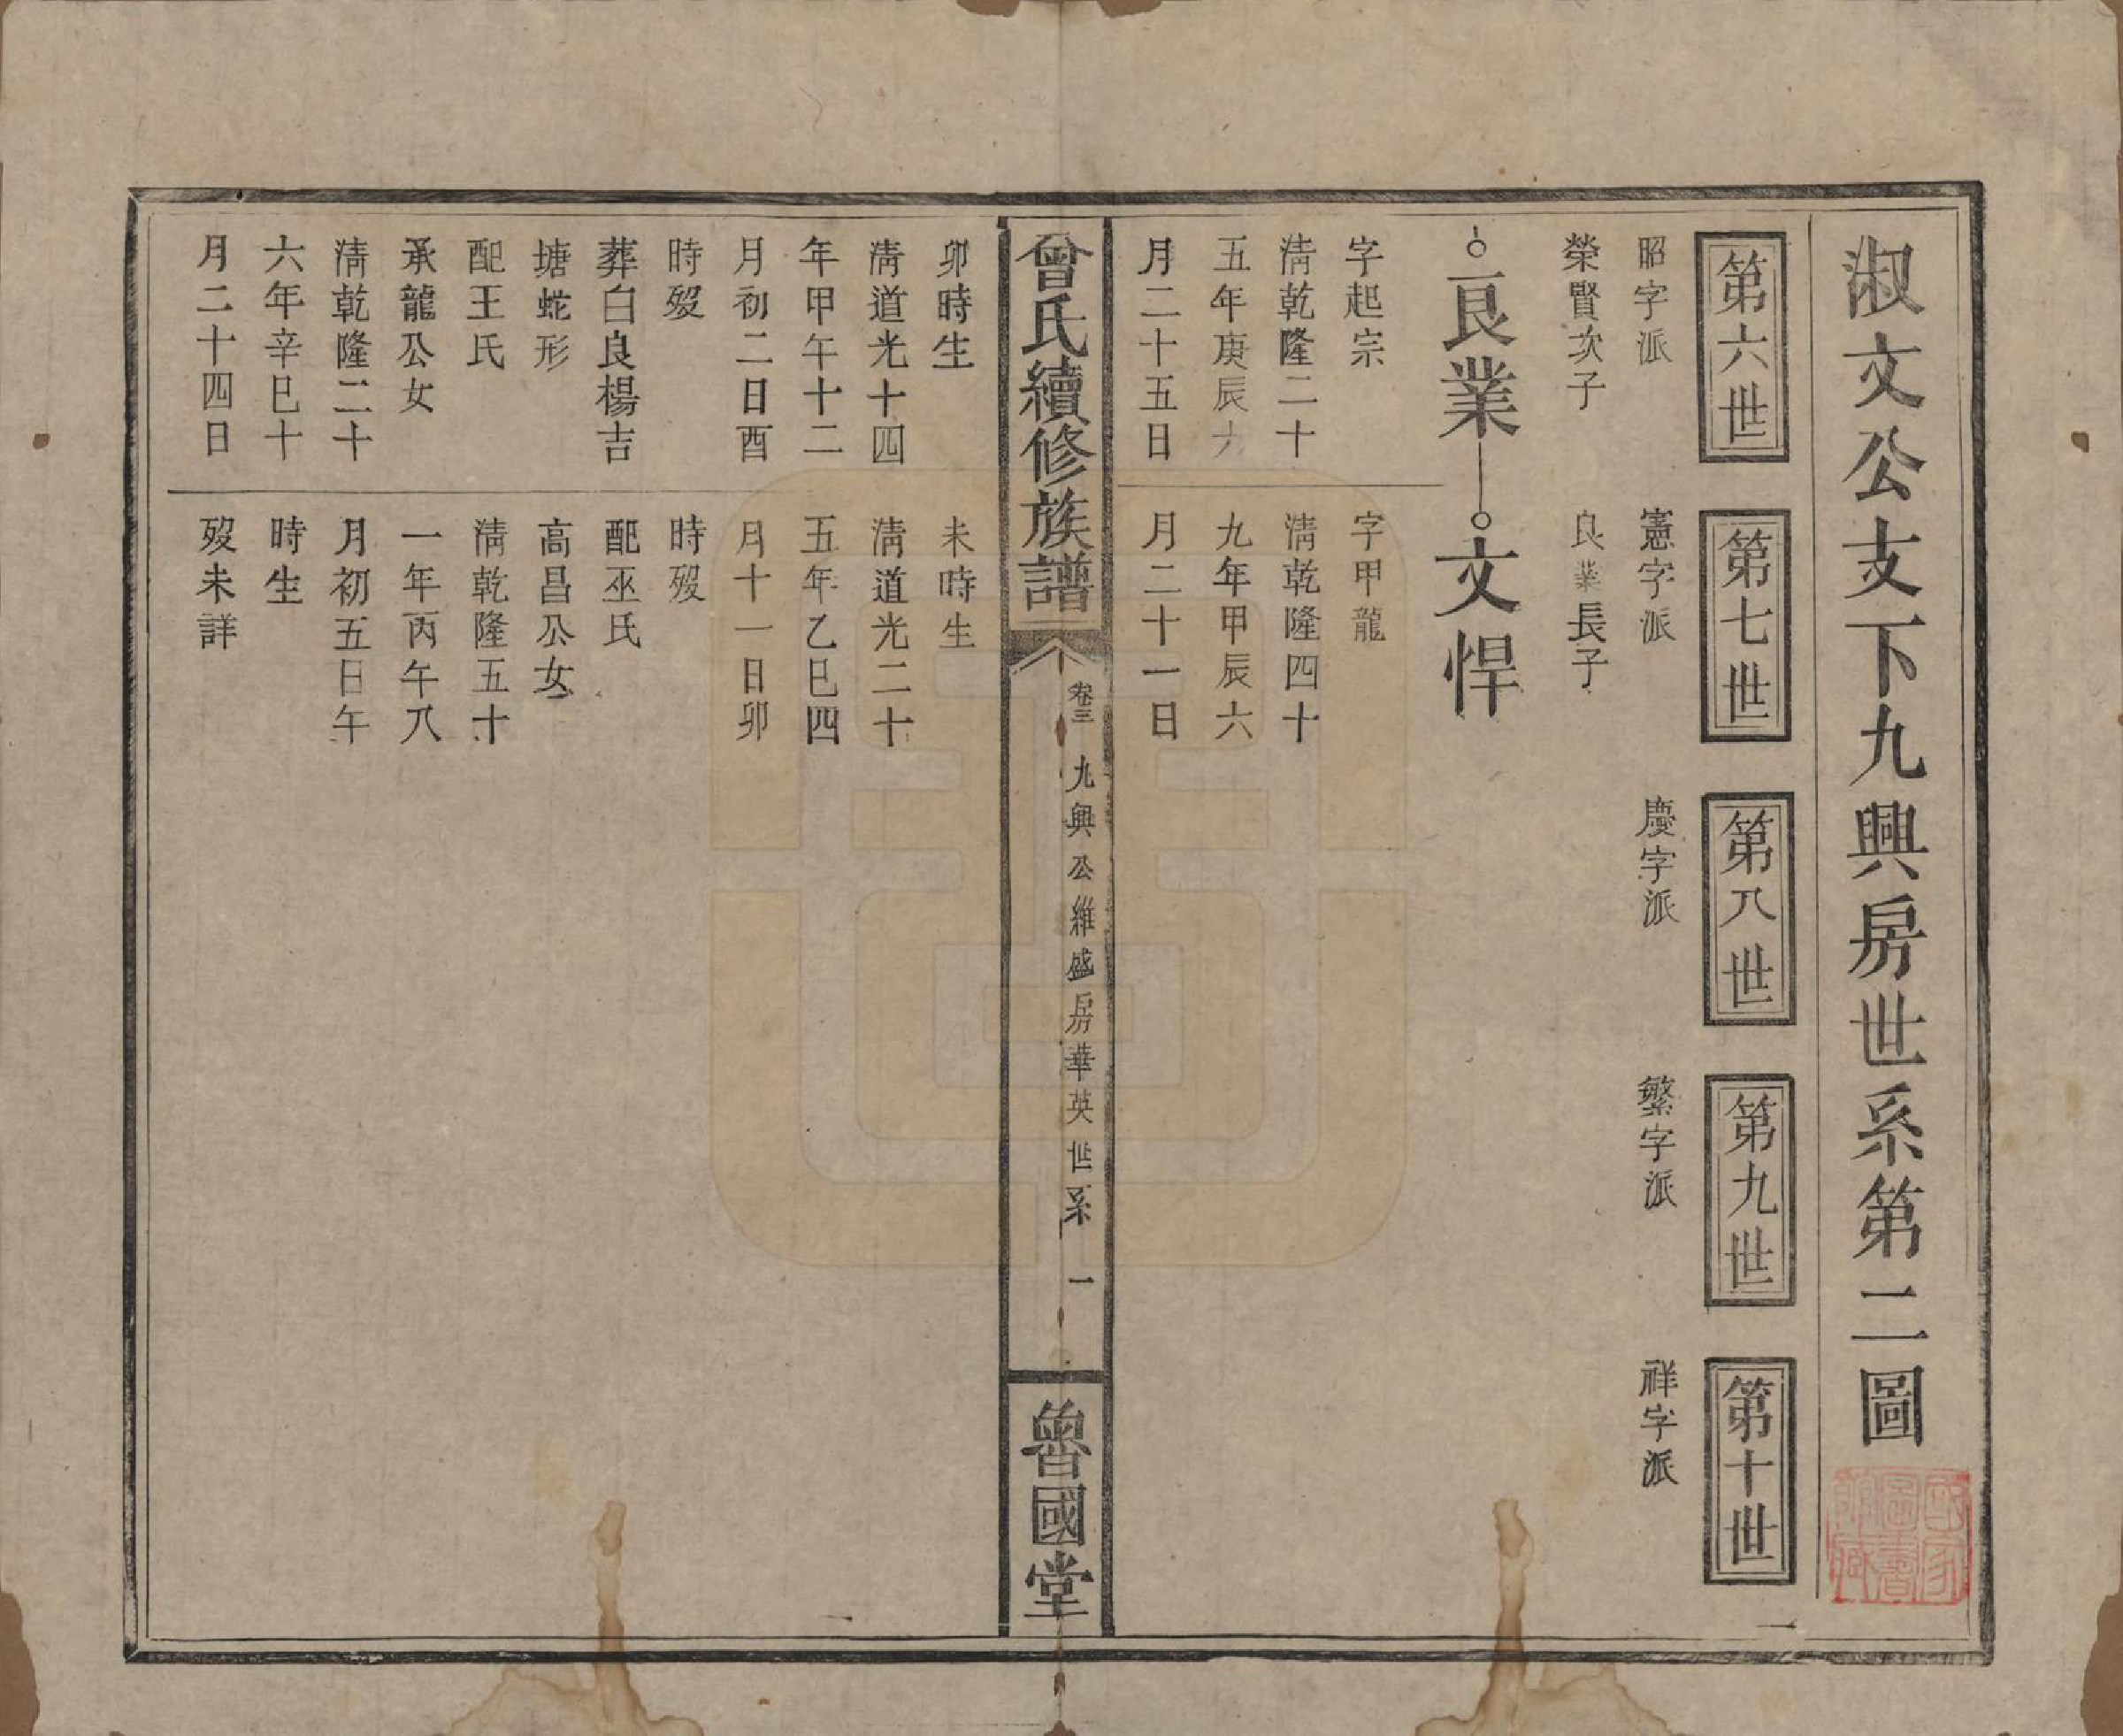 淑文公支下九興房世系第二圖
第六世
第七世
第八世
第九世
第十世
昭字派
憲字派
慶字派
繁字派
祥字派
榮賢次子
良業長子
良業
文悍
字起宗
清乾隆二十
五年庚辰六
月二十五日
字甲龍
清乾隆四十
九年甲辰六
月二十一日
曾氏續修族譜
卷三
九興公維盛房華英世系
一
魯國堂
卯時生
清道光十四
年甲午十二
月初二日酉
時歿
葬白良楊吉
塘蛇形
配王氏
承龍公女
清乾隆二十
六年辛巳十
月二十四日
未時生
清道光二十
五年乙巳四
月十一日卯
時歿
配巫氏
高昌公女
清乾隆五十
一年丙午八
月初五日午
時生
歿未詳
國家圖書館藏